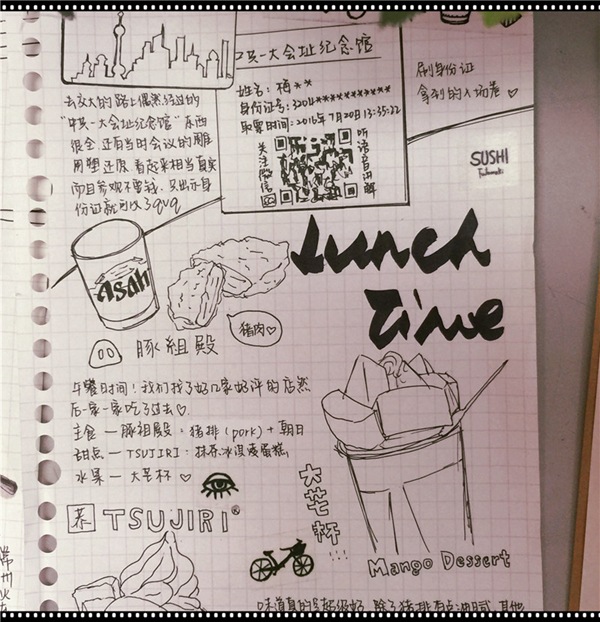 中共一大会址纪念馆
姓名：梅**
取票时间：2016年7月20日 13:35:22
关注微信
听语音讲解
刷身份证
拿到的入场卷♡
去交大的路上偶然经过的
"中共一大会址纪念馆"东西
很全，还有当时会议的雕
用塑还原 看起来相当真实
而且参观不要钱，只出示身
份证就可以了qwq
SUSHI
Lunch
Time
Asahi
猪肉♡
豚組殿
午餐时间！我们找了好几家好评的店然
后一家一家吃了过去♡
主食—豚祖殿：猪排（pork）+朝日
甜点—TSUJIRI：抹茶冰淇凌蛋糕
水果—大芒杯♡
大芒杯!!!
TSUJIRI®
Mango Dessert
味道真的超级好 除了猪排有点油腻 其他
常州